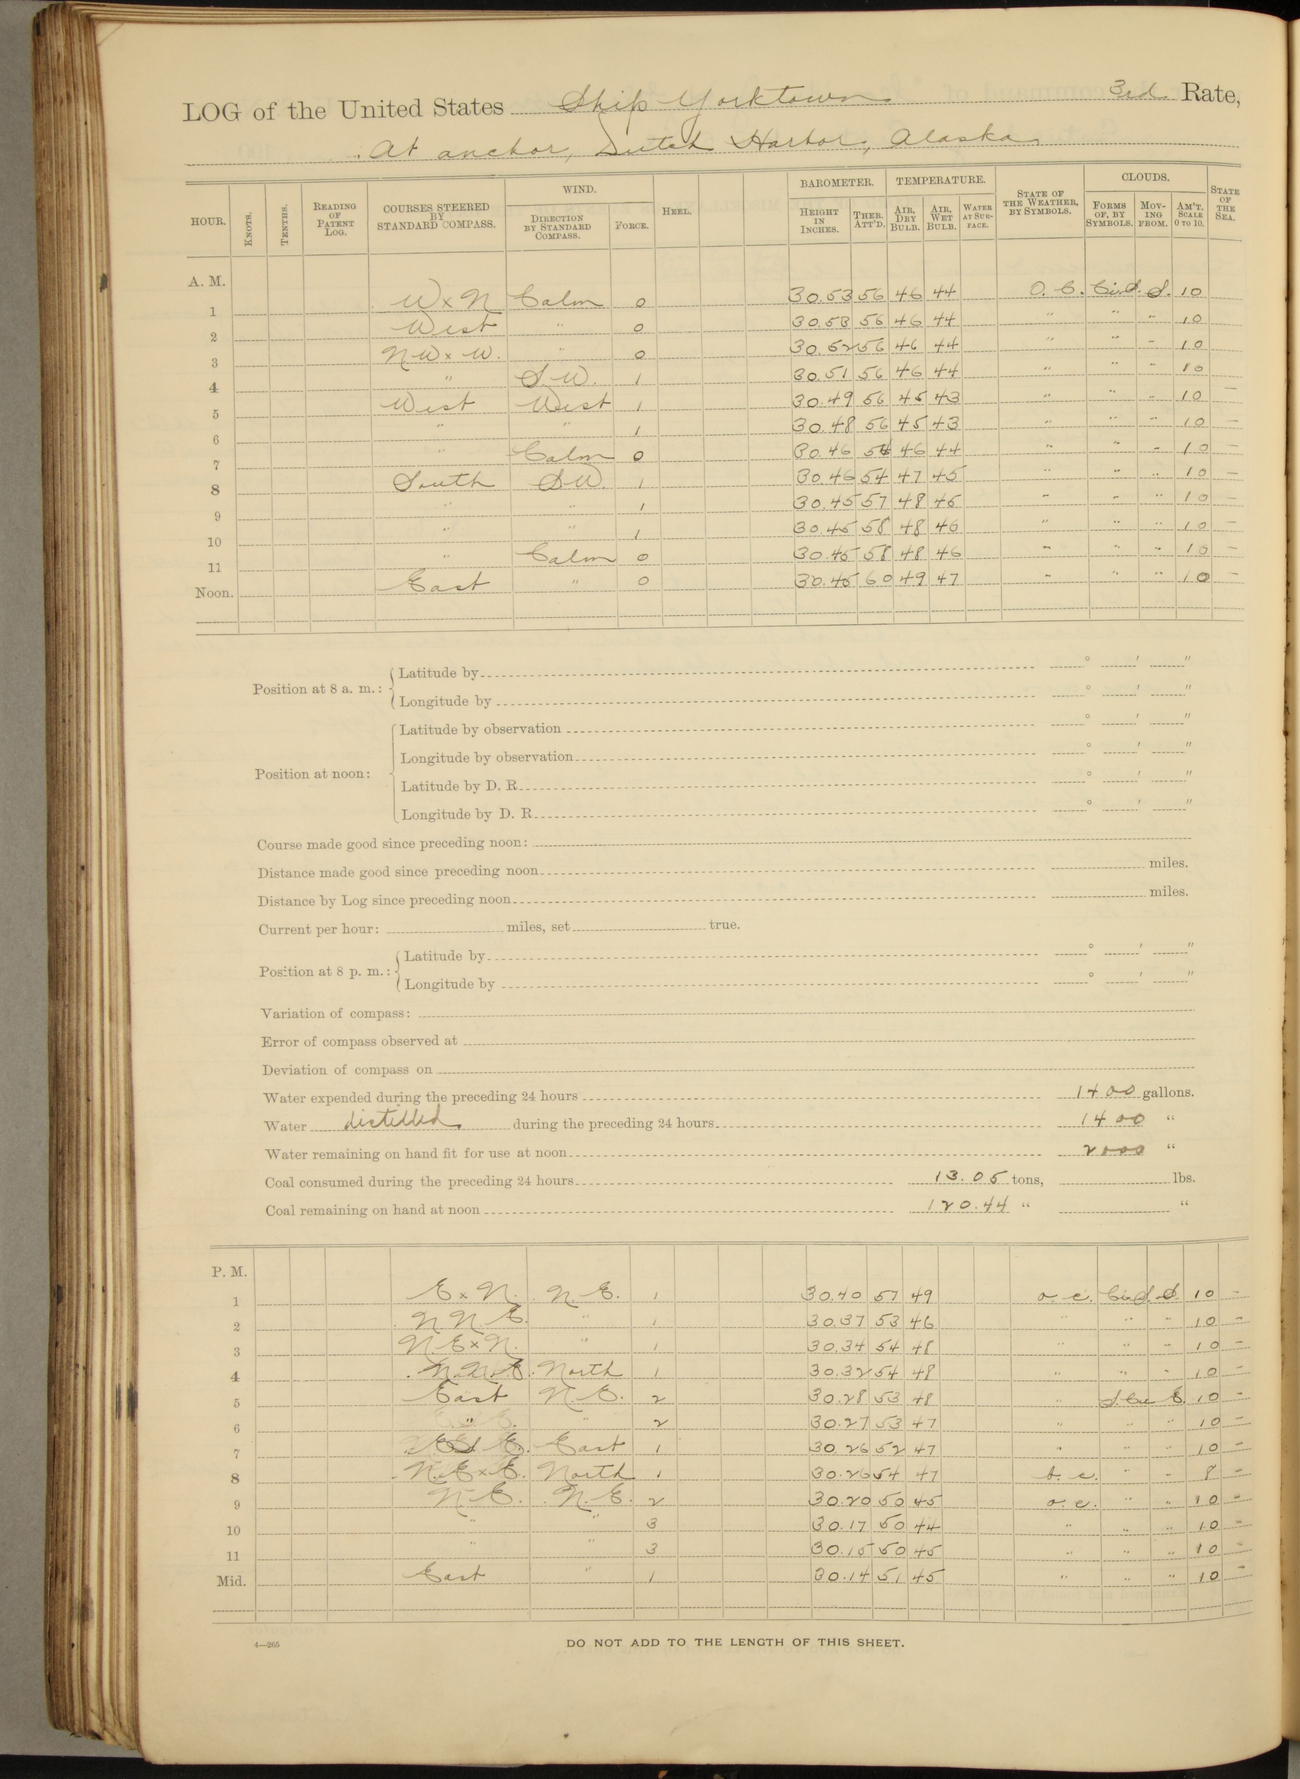 LOG of the United States Ship Yorktown 3rd Rate,
At anchor, Dutch Harbor, Alaska
HOUR. KNOTS. TENTHS. READING OF PATENT LOG. COURSES STEERED BY STANDARD COMPASS. WIND. DIRECTION BY STANDARD COMPASS. FORCE. HEEL. BAROMETER. HEIGHT IN INCHES. THER. ATT'D. TEMPERATURE. AIR, DRY BULB. AIR, WET BULB. WATER AT SURFACE. STATE OF THE WEATHER, BY SYMBOLS. CLOUDS. FORMS OF, BY SYMBOLS. MOVING FROM. AM'T, SCALE 0 TO 10. STATE OF THE SEA.
A. M.
1 W x N Calm 0 30.53 56 46 44 O. C. Cir.S. S. 10
2 West " 0 30.53 56 46 44 " " " 10
3 NW x W. " 0 30.52 56 46 44 " " " 10
4 " S.W. 1 30.51 56 46 44 " " " 10
5 West West 1 30.49 56 45 43 " " " 10 —
6 " " 1 30.48 56 45 43 " " " 10 —
7 " Calm 0 30.46 54 46 44 " " " 10 —
8 South SW. 1 30.46 54 47 45 " " " 10 —
9 " " 1 30.45 57 48 46 " " " 10 —
10 " " 1 30.45 58 48 46 " " " 10 —
11 " Calm 0 30.45 58 48 46 " " " 10 —
Noon. East " 0 30.45 60 49 47 " " " 10 —
Position at 8 a. m.: Latitude by ° ' "
Longitude by ° ' "
Position at noon: Latitude by observation ° ' "
Longitude by observation ° ' "
Latitude by D. R. ° ' "
Longitude by D. R. ° ' "
Course made good since preceding noon:
Distance made good since preceding noon miles.
Distance by Log since preceding noon miles.
Current per hour: miles, set true.
Position at 8 p. m.: Latitude by ° ' "
Longitude by ° ' "
Variation of compass:
Error of compass observed at
Deviation of compass on
Water expended during the preceding 24 hours 1400 gallons.
Water distilled during the preceding 24 hours 1400 "
Water remaining on hand fit for use at noon 2000 "
Coal consumed during the preceding 24 hours 13.05 tons, lbs.
Coal remaining on hand at noon 120.44 " "
P. M.
1 E x N. N. E. 1 30.40 57 49 o. c. Cir.S. S. 10 —
2 N N E. " 1 30.37 53 46 " " " 10 —
3 N. E x N. " 1 30.34 54 48 " " " 10 —
4 N.N.E. North 1 30.32 54 48 " " " 10 —
5 East N. E. 2 30.28 53 48 " S.Cu E. 10 —
6 " " 2 30.27 53 47 " " " 10 —
7 E S E. East 1 30.26 52 47 " " " 10 —
8 N. E x E. North 1 30.26 54 47 b. c. " " 8 —
9 N. E. N. E. 2 30.20 50 45 o. c. " " 10 —
10 " " 3 30.17 50 44 " " " 10 —
11 " " 3 30.15 50 45 " " " 10 —
Mid. East " 1 30.14 51 45 " " " 10 —
4—265
DO NOT ADD TO THE LENGTH OF THIS SHEET.